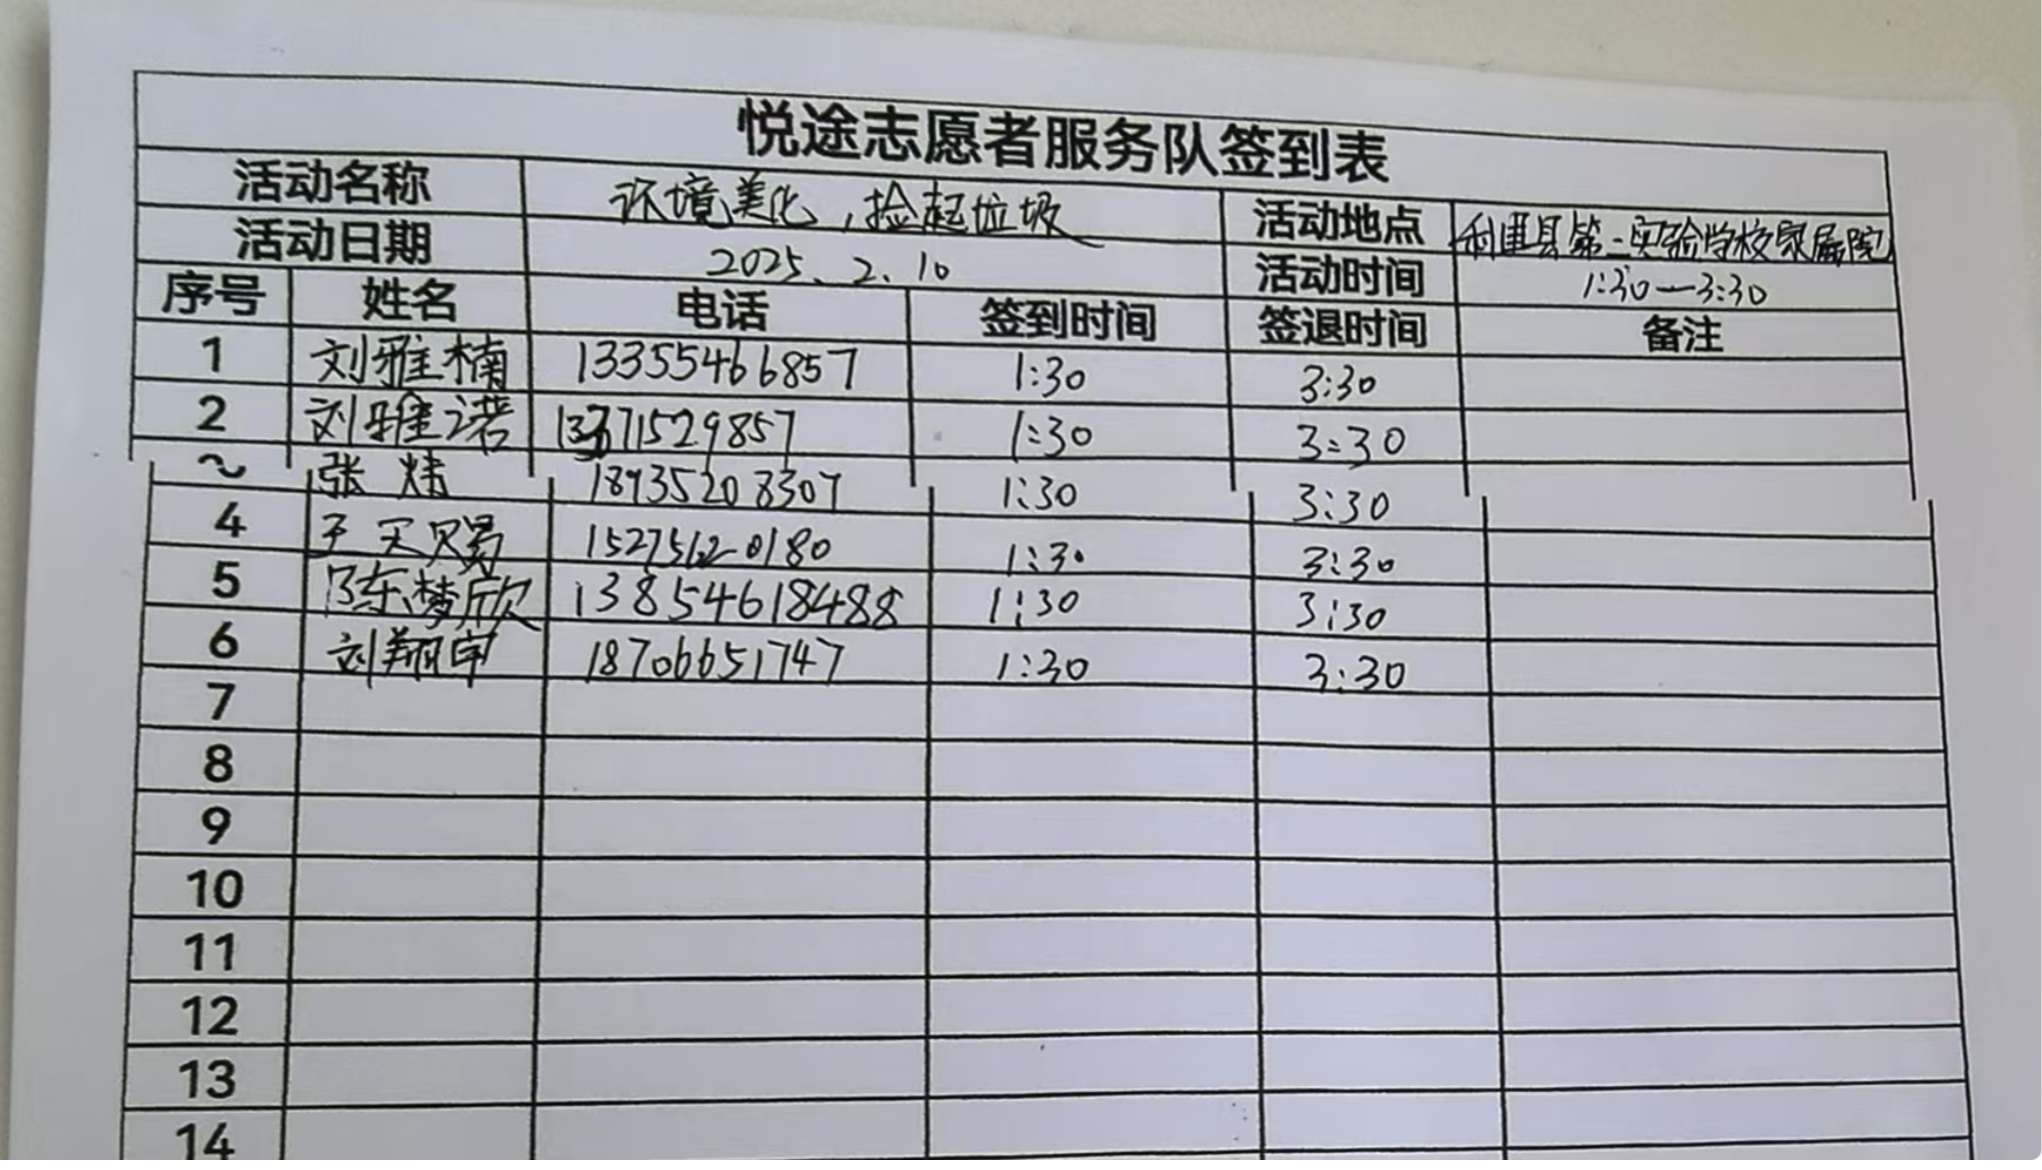 悦途志愿者服务队签到表
活动名称 环境美化，捡起垃圾 活动地点 利津县第二实验学校家属院
活动日期 2025.2.10 活动时间 1:30—3:30
序号 姓名 电话 签到时间 签退时间 备注
1 刘雅楠 13355466857 1:30 3:30
2 刘雅诺 1:30 3:30
张炜 18935208307 1:30 3:30
4 天赐 15275620180 1:30 3:30
5 陈梦欣 13854618488 1:30 3:30
6 刘翔宇 18706651747 1:30 3:30
7
8
9
10
11
12
13
14